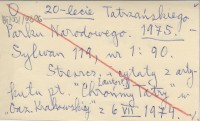 20-lecie Tatrzańskiego
Parku Narodowego. 1975. -
Sylwan 119, nr 1: 90.
Streszcz. i cytaty z arty-
kułu pt. "Chrońmy Tatry" w
"Gaz. Krakowskiej" z 6 VII 1974.